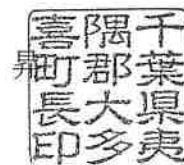 千葉県夷
隅郡大多
喜町長印